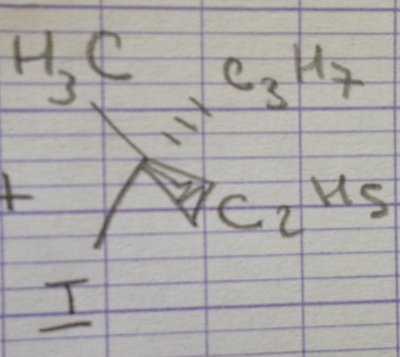 H₃C C₃H₇
+ C₂H5
I